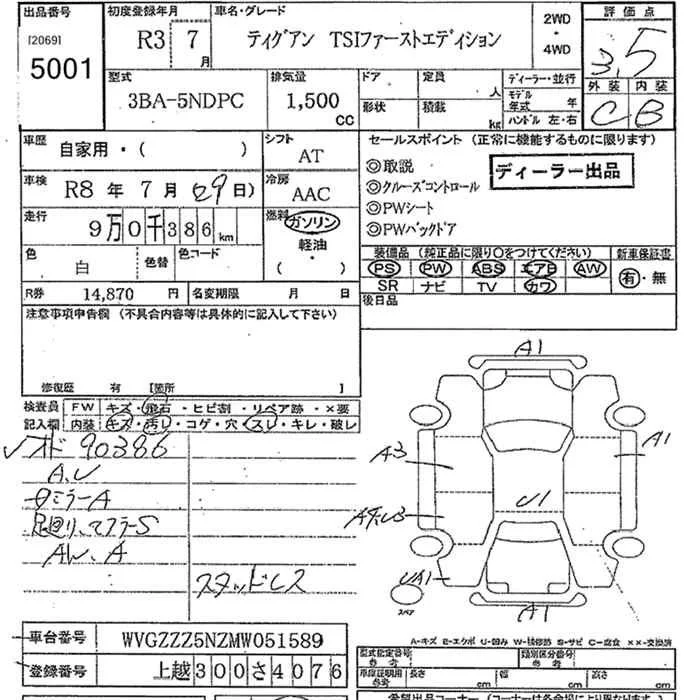 出品番号 初度登録年月 車名・グレード 評価点
[2069] R3 7月 ティグアン TSIファーストエディション 2WD・4WD 3.5
5001
型式 排気量 ドア 定員 人 ディーラー・並行 外装 内装
3BA-5NDPC 1,500 CC 形状 積載 kg モデル年式 年 C B
ハンドル 左・右
車歴 自家用・( ) シフト AT セールスポイント (正常に機能するものに限ります)
車検 R8年7月(29日) 冷房 AAC
◎取説 ディーラー出品
◎クルーズコントロール
◎PWシート
◎PWバックドア
走行 9万0千386km 燃料 ガソリン 軽油・( )
色 白 色替 色コード
装備品 (純正品に限り○をつけてください) 新車保証書
PS PW ABS エアB AW 有・無
SR ナビ TV カワ
R券 14,870円 名変期限 月 日 後日品
注意事項申告欄 (不具合内容等は具体的に記入して下さい)
修復歴 有 [箇所 ]
検査員 FW キズ・飛石・ヒビ割・リペア跡・×要
記入欄 内装 キズ・汚レ・コゲ・穴・スレ・キレ・破レ
オド 90386
A.U
ミラーA
足廻り、マフラーS
AW、A
スタッドレス
A1
A3 A1
U1
UA1
スペア
A1
A-キズ E-エクボ U-凹み W-補修跡 S-サビ C-腐食 ××-交換済
車台番号 WVGZZZ5NZMW051589
登録番号 上越300さ4076
型式指定番号 参考 類別区分番号 参考
車庫証明用 参考 長さ cm 幅 cm 高さ cm